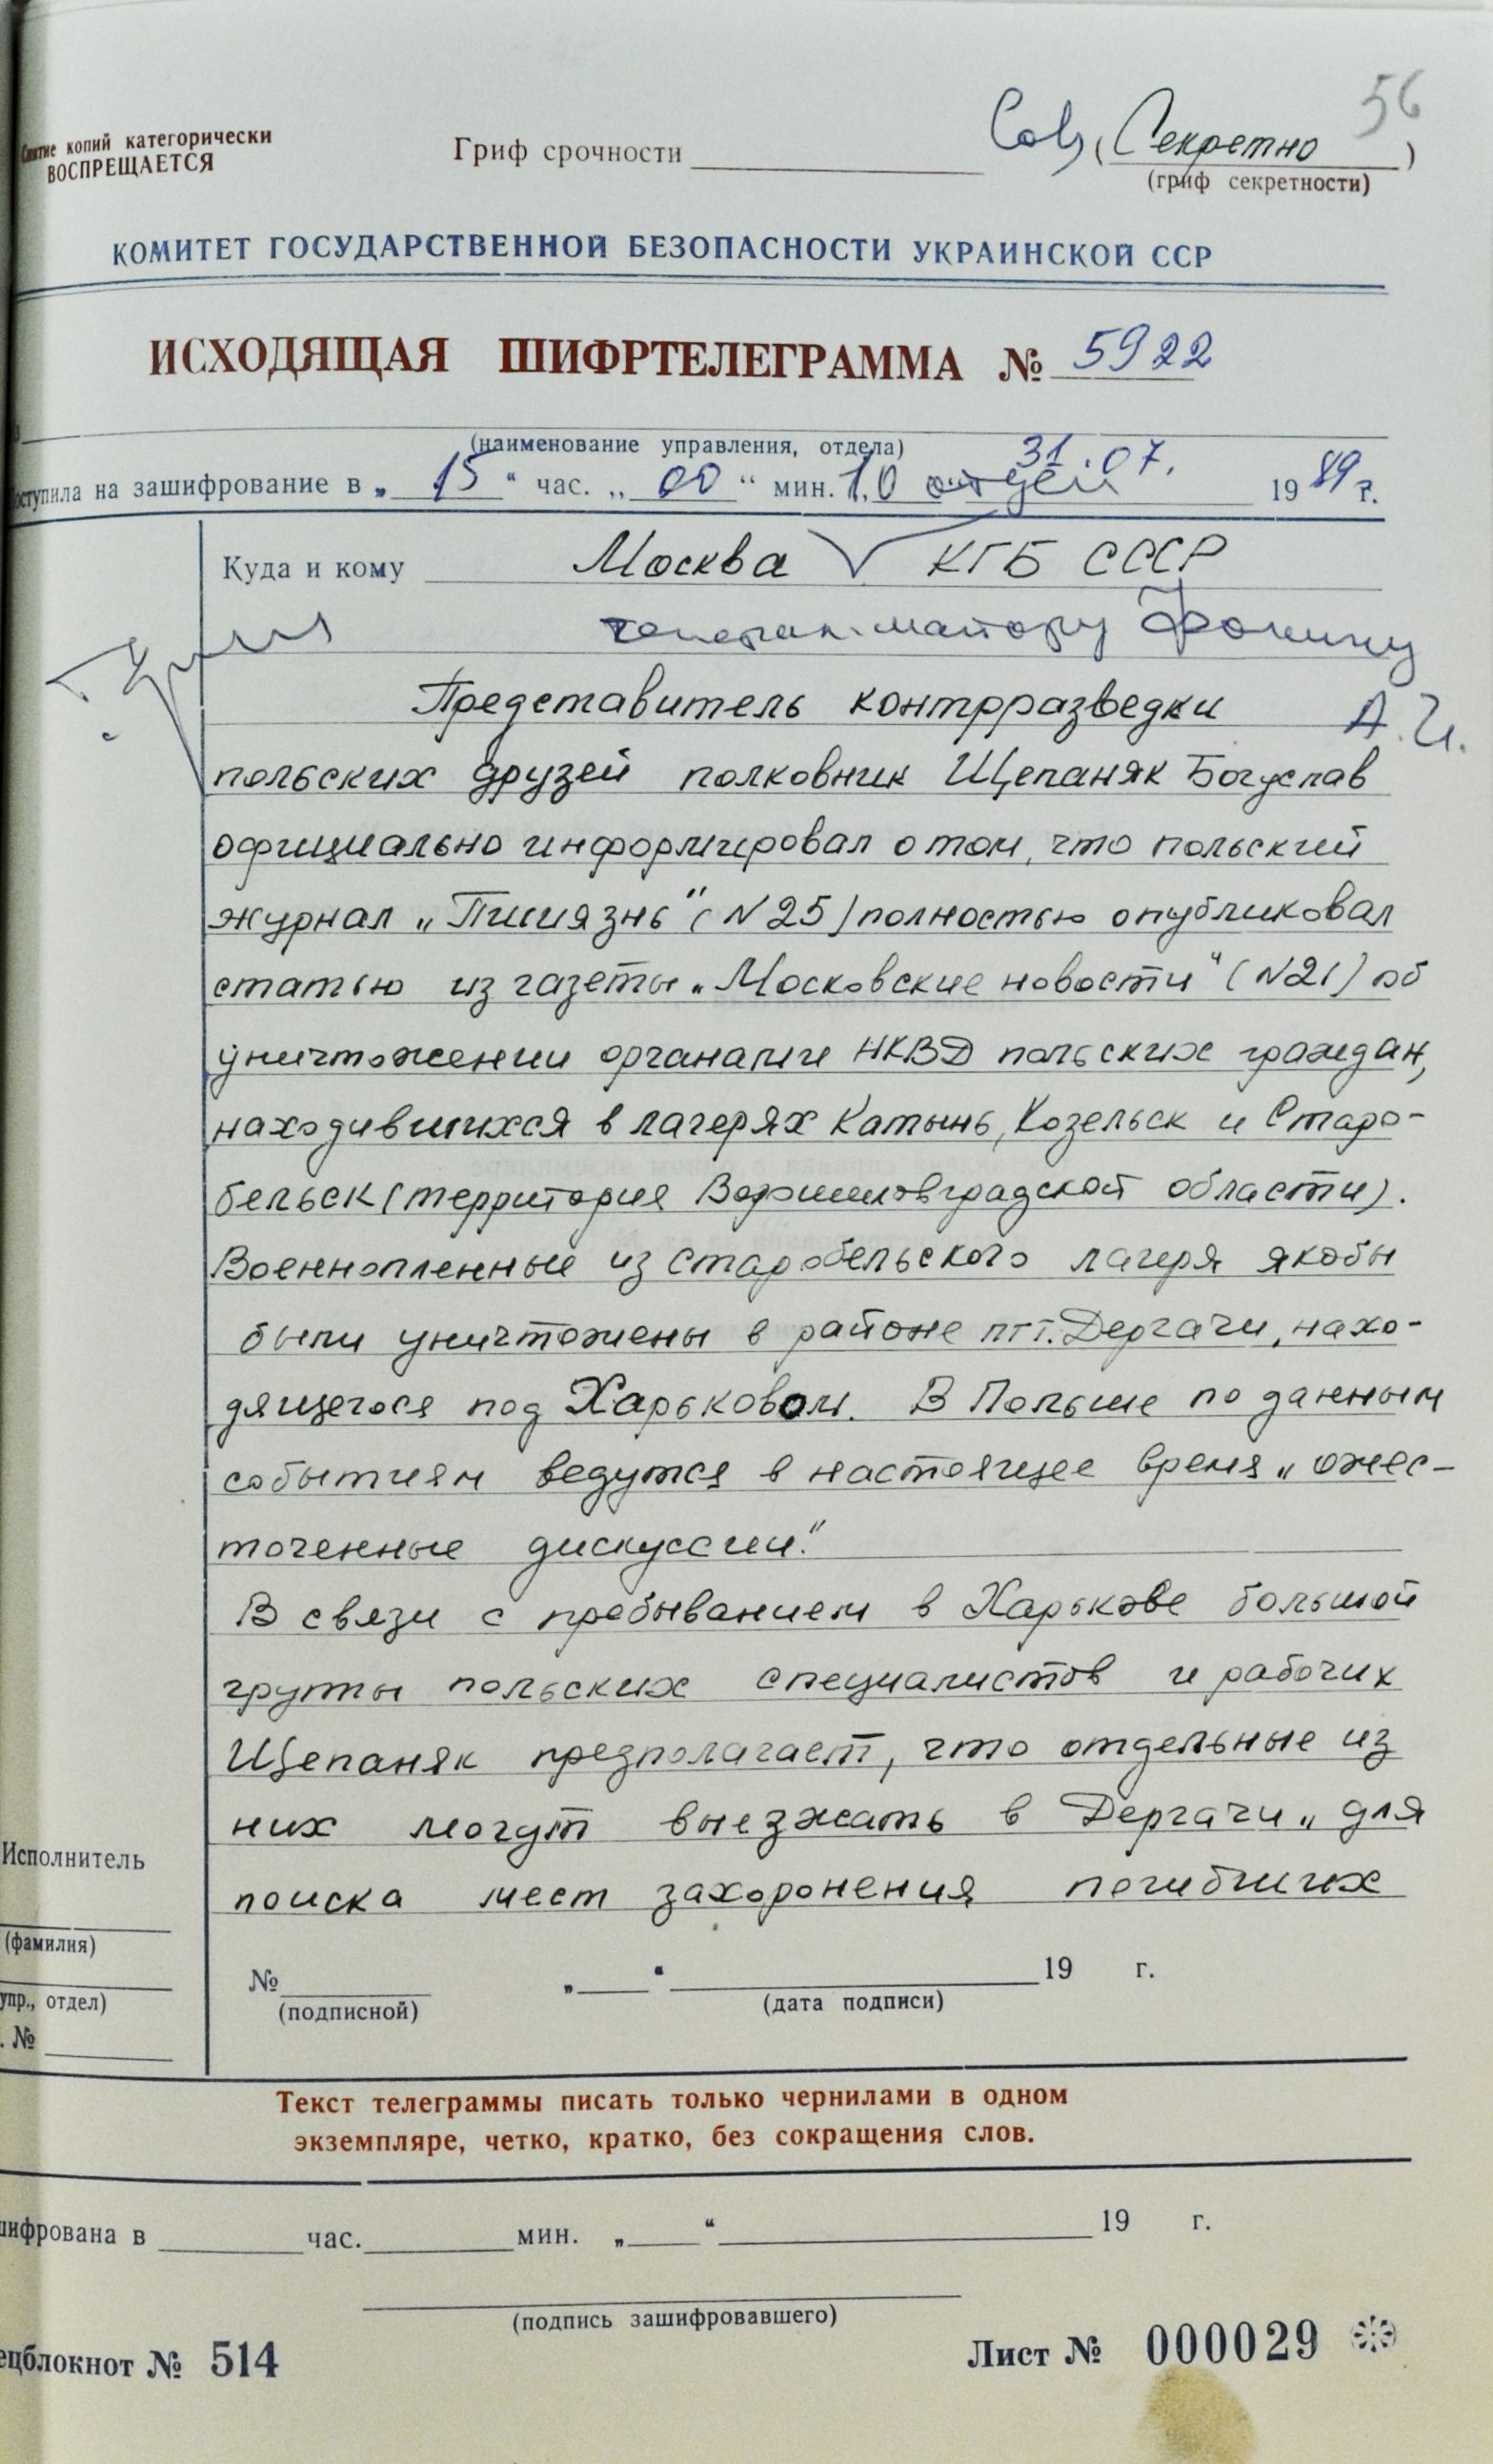 56
Снятие копий категорически
ВОСПРЕЩАЕТСЯ
Гриф срочности
Сов. (Секретно)
(гриф секретности)
КОМИТЕТ ГОСУДАРСТВЕННОЙ БЕЗОПАСНОСТИ УКРАИНСКОЙ ССР
ИСХОДЯЩАЯ ШИФРТЕЛЕГРАММА № 5922
(наименование управления, отдела)
31.07.
поступила на зашифрование в „15“ час. „00“ мин. 10 отдел 1989 г.
Куда и кому Москва КГБ СССР
генерал-майору Фомину
А.И.
Представитель контрразведки
польских друзей полковник Щепаняк Богуслав
официально информировал о том, что польский
журнал „Пшиязнь“ (N25) полностью опубликовал
статью из газеты „Московские новости“ (N21) об
уничтожении органами НКВД польских граждан,
находившихся в лагерях Катынь, Козельск и Старо-
бельск (территория Ворошиловградской области).
Военнопленные из старобельского лагеря якобы
были уничтожены в районе пгт. Дергачи, нахо-
дящегося под Харьковом. В Польше по данным
событиям ведутся в настоящее время „ожес-
точенные дискуссии“.
В связи с пребыванием в Харькове большой
группы польских специалистов и рабочих
Щепаняк предполагает, что отдельные из
них могут выезжать в Дергачи „для
поиска мест захоронения погибших
Исполнитель
(фамилия)
упр., отдел)
. №
№ „ “ 19 г.
(подписной) (дата подписи)
Текст телеграммы писать только чернилами в одном
экземпляре, четко, кратко, без сокращения слов.
шифрована в час. мин. „ “ 19 г.
(подпись зашифровавшего)
ецблокнот № 514 Лист № 000029